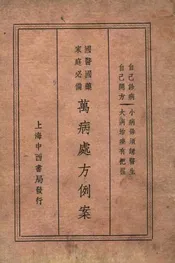 自己診病 小病須請醫生
自己開方 大病治療有把握
國醫國藥
家庭必備
萬病處方例案
上海中西書局發行